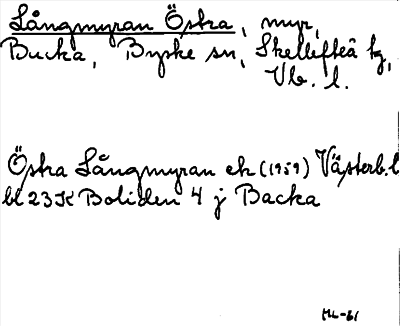 Långmyran Östra, myr,
Bucka, Byske sn, Skellefteå tg,
Vb. l.
Östra Långmyran ek (1959) Västerb. l
bl 23K Boliden 4 j Backa
ML-61